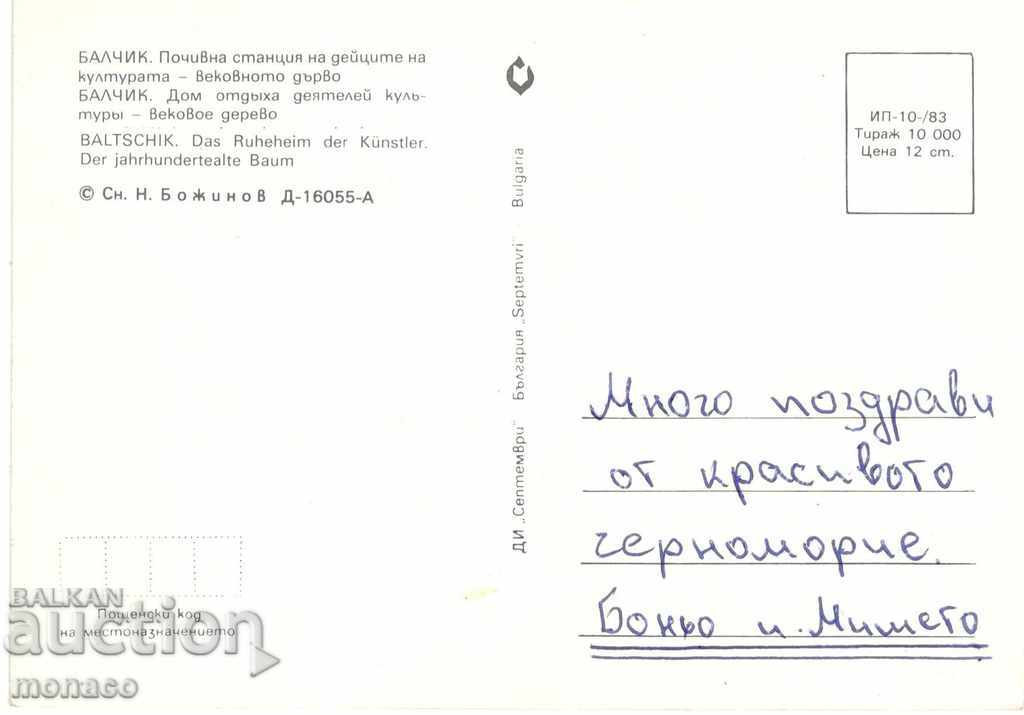 БАЛЧИК. Почивна станция на дейците на
културата – вековното дърво
БАЛЧИК. Дом отдыха деятелей куль-
туры – вековое дерево
BALTSCHIK. Das Ruheheim der Künstler.
Der jahrhundertealte Baum
© Сн. Н. Божинов Д-16055-А
ДИ „Септември" България „Septemvri" Bulgaria
ИП-10-/83
Тираж 10 000
Цена 12 ст.
Много поздрави
от красивото
черноморие.
Боньо и Мимето
Пощенски код
на местоназначението
BALKAN
auction
monaco